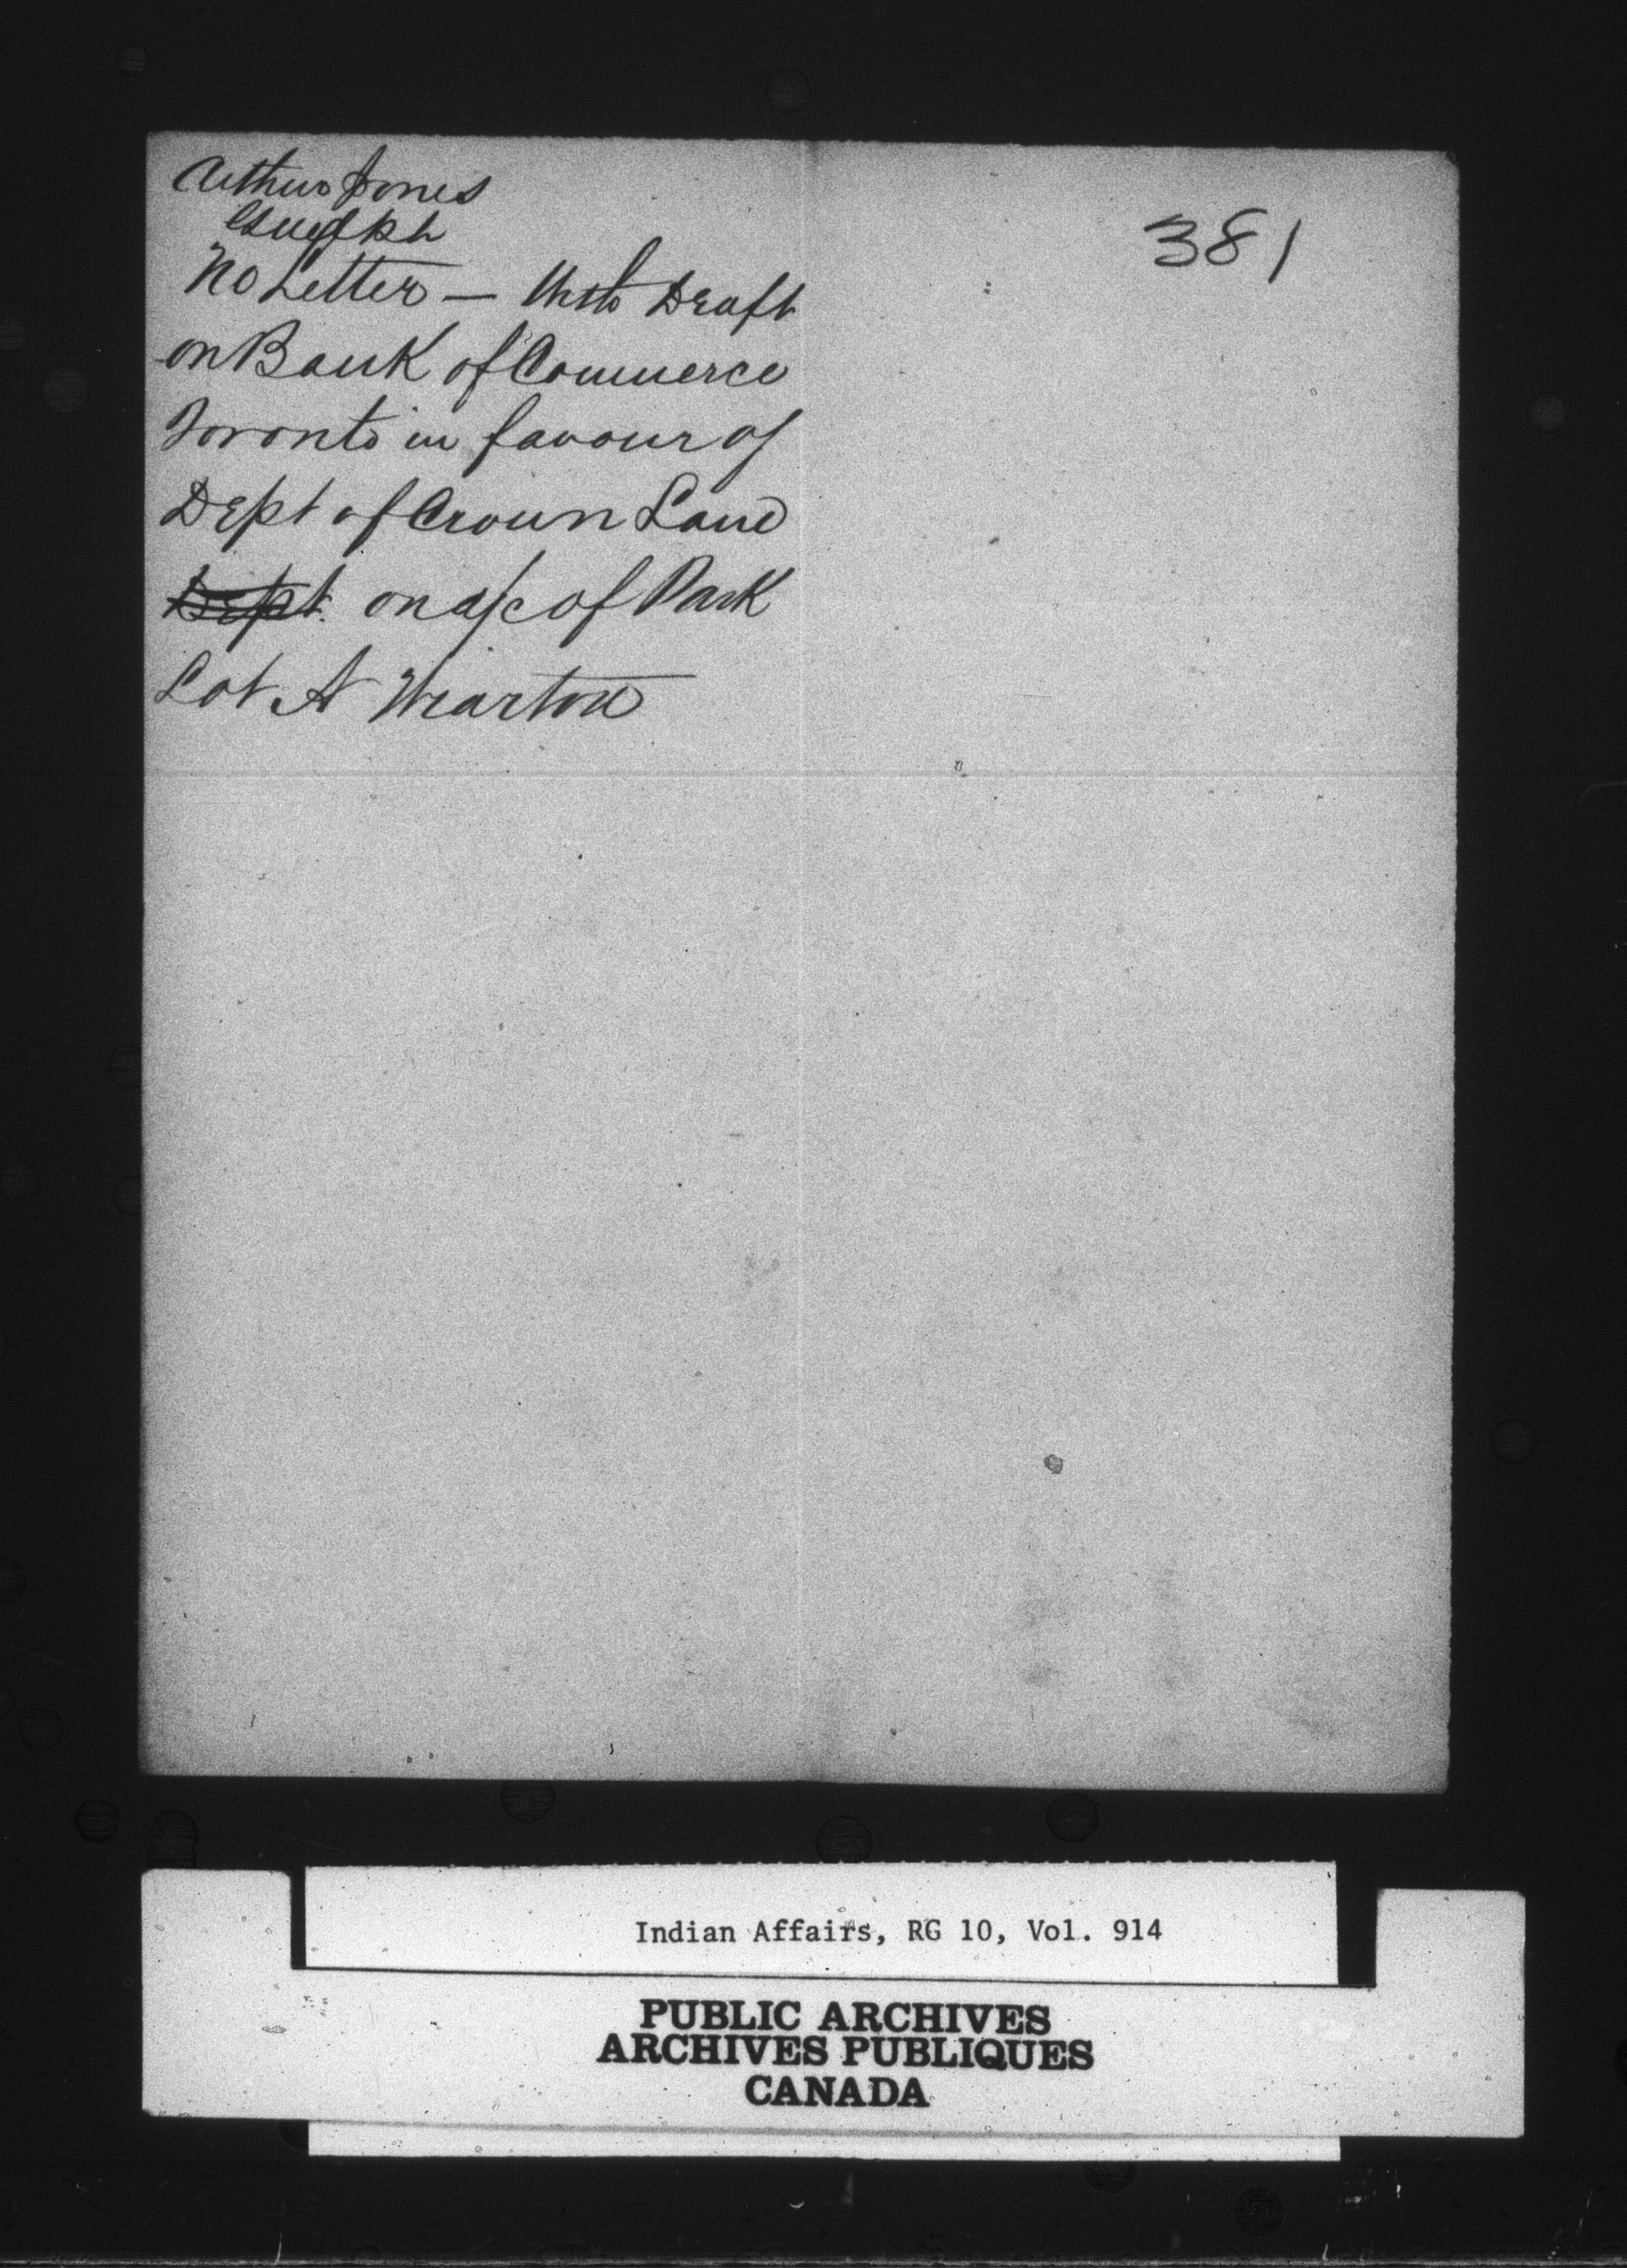 Arthur Jones
Guelph
381
No Letter — Draft
on Bank of Commerce
Toronto in favour of
Dept of Crown Land
Dept. on a/c of Park
Lot A Wiarton
Indian Affairs, RG 10, Vol. 914
PUBLIC ARCHIVES
ARCHIVES PUBLIQUES
CANADA